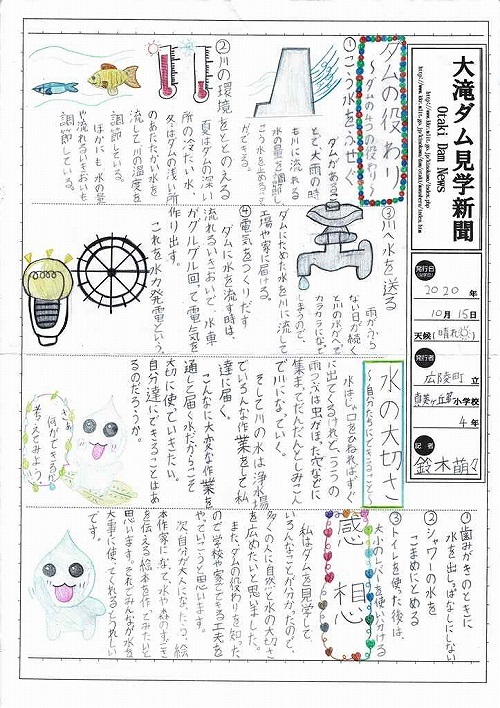 大滝ダム見学新聞
Otaki Dam News
発行日
2020年
10月15日
天候(晴れ)
発行者
広陵町 立
真美ヶ丘第一小学校
4年
記者
鈴木萌々
ダムの役わり
〜ダムの4つの役わり〜
①こう水をふせぐ
ダムがある
ことで、大雨の時
も川に流れる
水の量を調節し
こう水を止めること
ができる。
②川の環境をととのえる
夏はダムの深い
所の冷たい水、
冬はダムの浅い所
のあたたかい水を
流して川の温度を
調節している。
ほかにも水の量
や流れのいきおいも
調節している。
③川へ水を送る
雨がふら
ない日が続く
と川の水がへって
カラカラになって
しまうので、
ダムにためた水を川に流して
工場や家に届ける。
④電気をつくりだす
ダムに水を流す時は、
流れるいきおいで、水車
がグルグル回って電気を
作り出す。
これを水力発電という。
水の大切さ
〜自分たちにできること〜
水はじゃ口をひねればすぐ
に出てくるけれど、1つ1つの
雨つぶは虫がほった穴などに
集まってだんだんとしみこん
で川になっていく。
そして川の水は浄水場
でいろんな作業をして私
達に届く。
こんなに大変な作業を
通して届く水だからこそ
大切に使っていきたい。
自分達にできることはあ
るのだろうか。
さあ
何ができるか
考えてみよう
①歯みがきのときに
水を出しっぱなしにしない
②シャワーの水を
こまめにとめる
③トイレを使った後は、
大小のレバーを使い分ける
感想
私はダムを見学して、
いろんなことが分かったので、
多くの人に自然と水の大切さ
を広めたいと思いました。
また、ダムの役わりを知った
ので学校や家でできる工夫を
やっていこうと思います。
次、自分が大人になったら、絵
本作家になって、水や森のすごさ
を伝える絵本を作ってみたいと
思います。それでみんなが水を
大事に使ってくれるとうれしい
です。